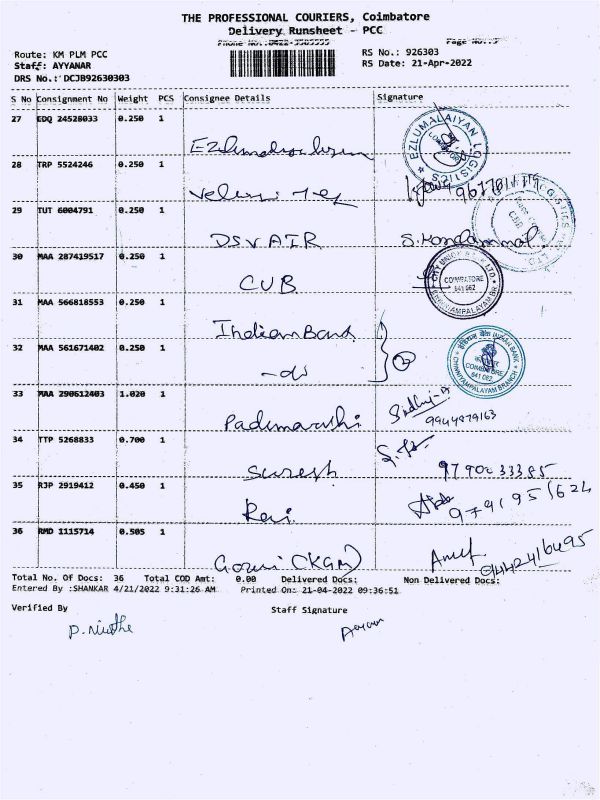 THE PROFESSIONAL COURIERS, Coimbatore
Delivery Runsheet - PCC
Phone No.:0422-3505555
Page No.:3
Route: KM PLM PCC
RS No.: 926303
Staff: AYYANAR
RS Date: 21-Apr-2022
DRS No.: DCJB92630303
S No Consignment No Weight PCS Consignee Details Signature
27 EDQ 24528033 0.250 1
EZLUMALAIYAN LOGISTICS
28 TRP 5524246 0.250 1
29 TUT 6004791 0.250 1
DSV AIR S. Kondammal
30 MAA 287419517 0.250 1
CUB
COIMBATORE
641 062
31 MAA 566818553 0.250 1
Indian Bank
32 MAA 561671402 0.250 1
-do
2
INDIAN BANK
COIMBATORE
641 062
CHINNIYAMPALAYAM BRANCH
33 MAA 290612403 1.020 1
Padmavathi
9944979163
34 TTP 5268833 0.700 1
Suresh 9790233385
35 RJP 2919412 0.450 1
Ravi 9791951624
36 RMD 1115714 0.505 1
Gowri (KGM) 9442416495
Total No. Of Docs: 36 Total COD Amt: 0.00 Delivered Docs: Non Delivered Docs:
Entered By :SHANKAR 4/21/2022 9:31:26 AM Printed On: 21-04-2022 09:36:51
Verified By Staff Signature